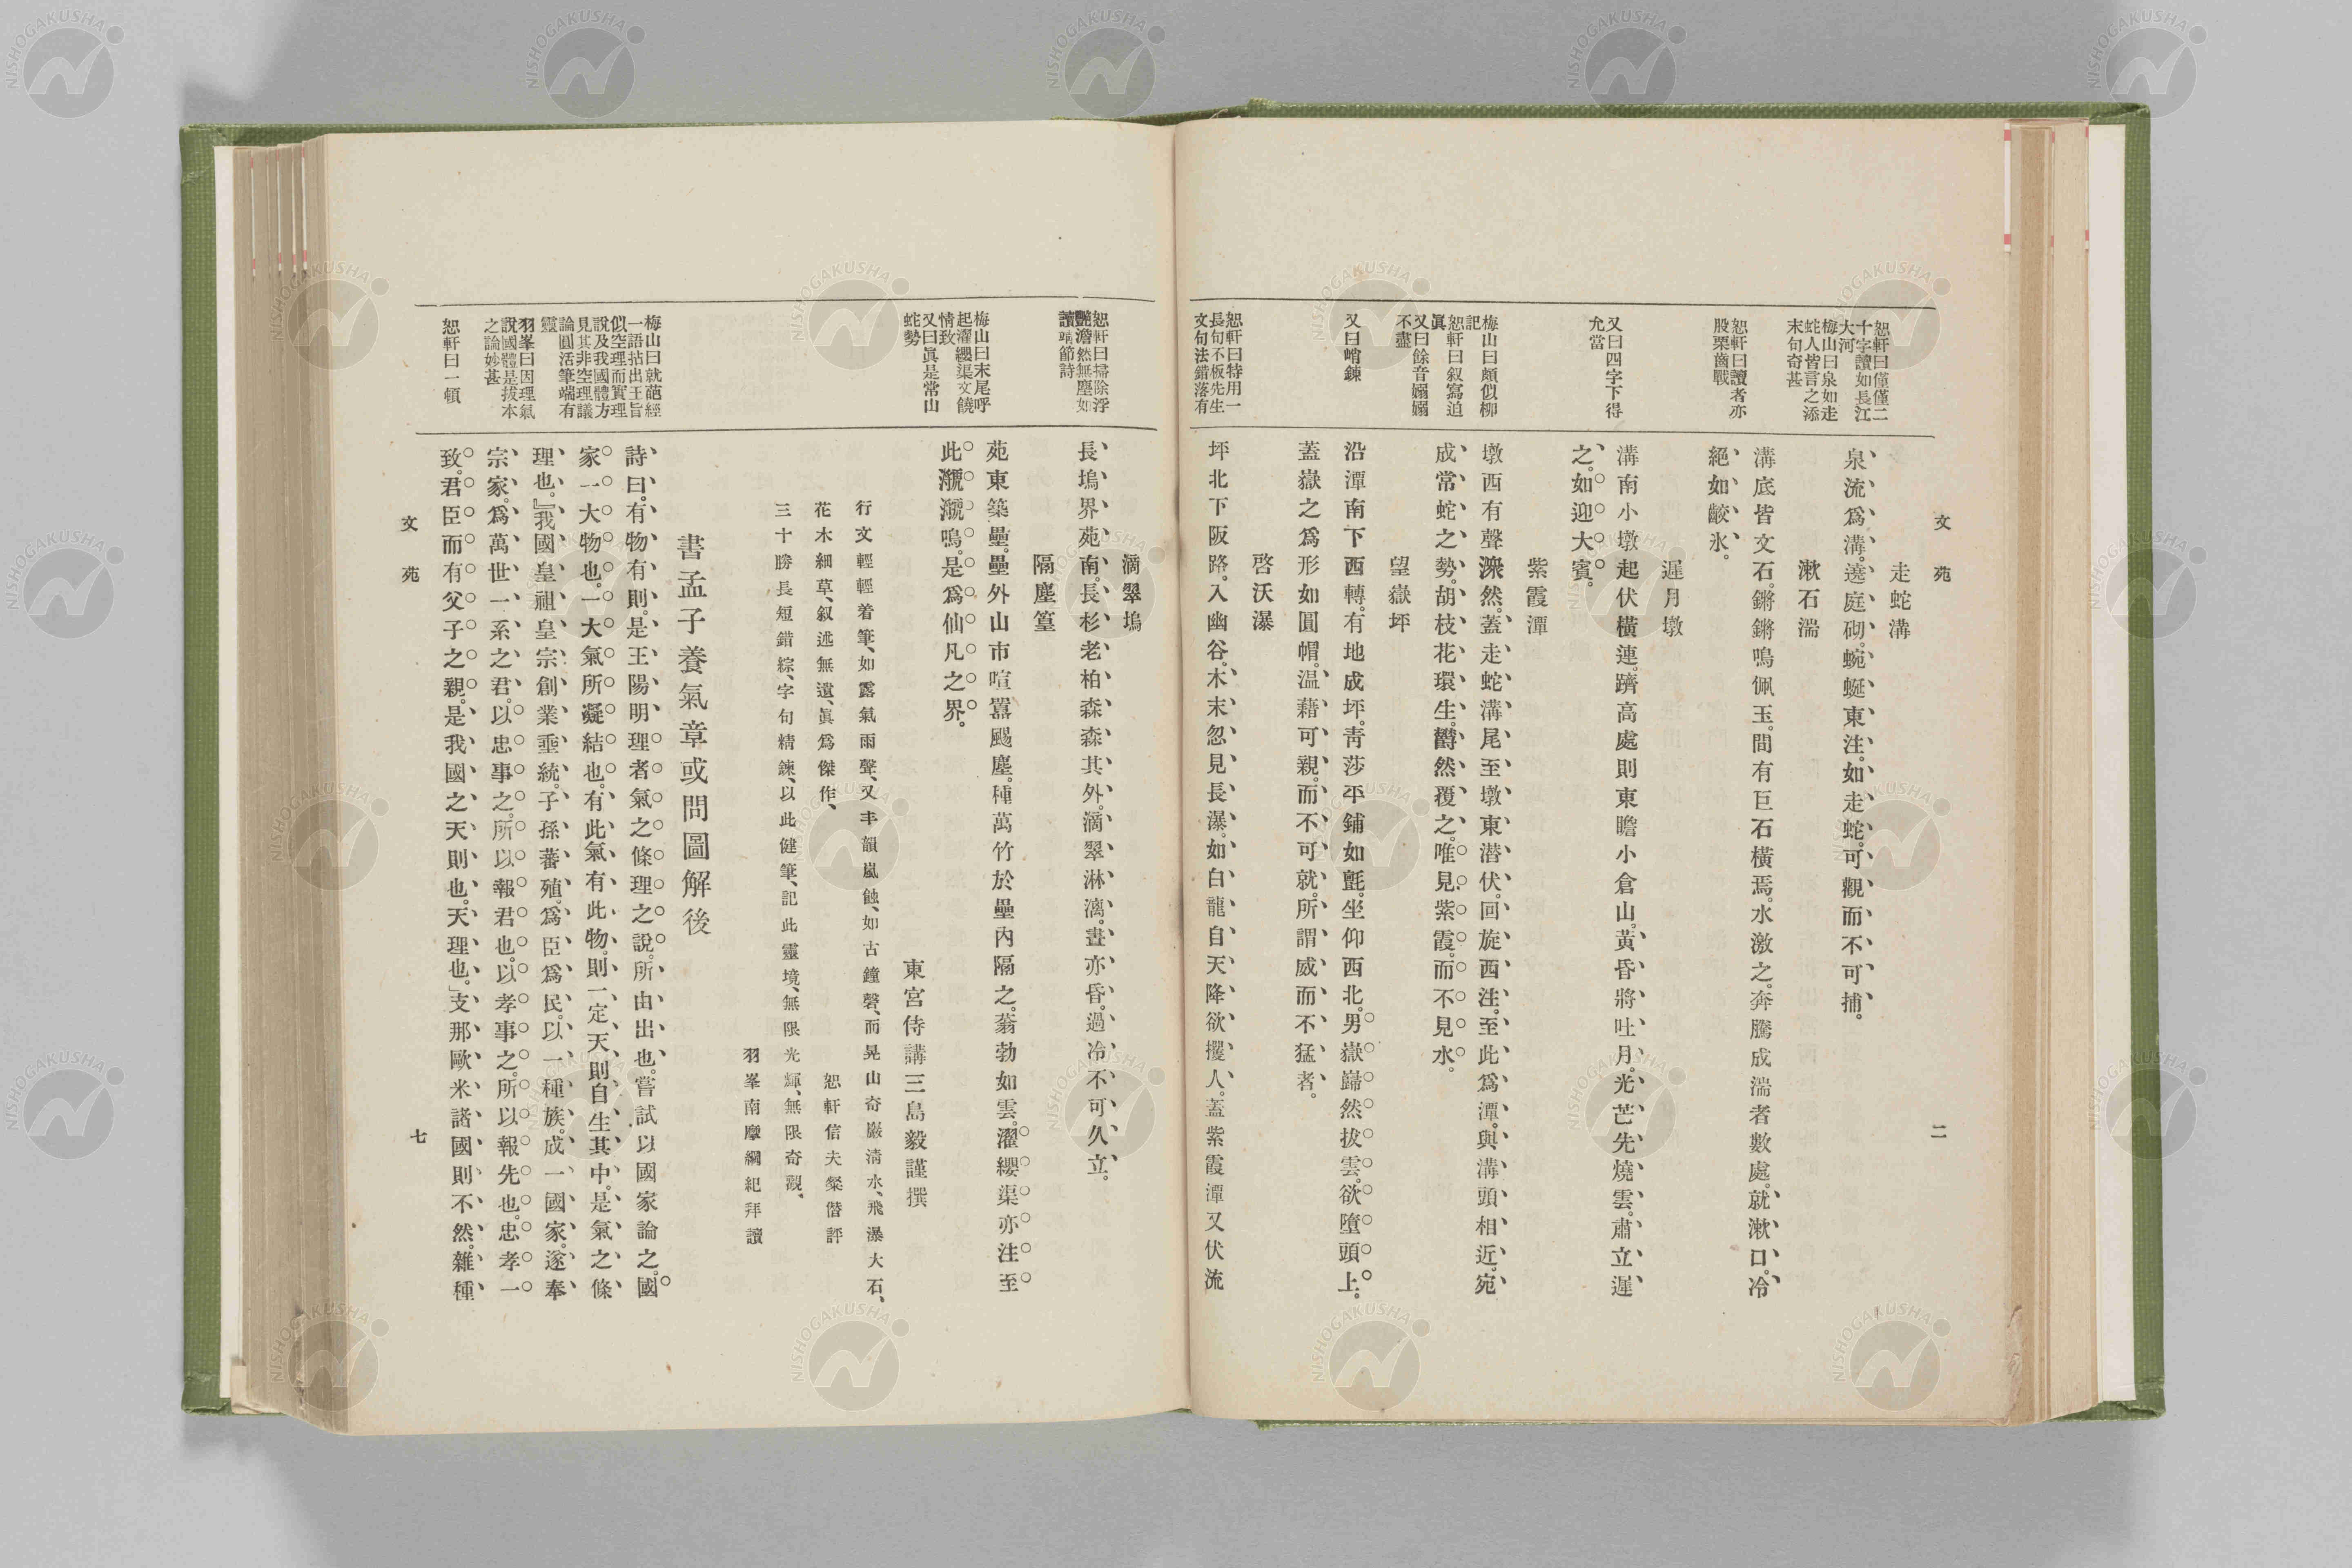 文苑
二
恕軒曰僅僅二
十字讀如長江
大河
梅山曰泉如走
蛇人皆言之添
末句奇甚
恕軒曰讀者亦
股栗齒戰
又曰四字下得
允當
梅山曰頗似柳
記
恕軒曰叙寫迫
眞
又曰餘音嫋嫋
不盡
又曰峭鍊
恕軒曰特用一
長句不板先生
文句法錯落有
走蛇溝
泉流爲溝。遶庭砌。蜿蜒東注。如走蛇。可觀而不可捕。
漱石湍
溝底皆文石。鏘鏘鳴佩玉。間有巨石橫焉。水激之。奔騰成湍者數處。就漱口。冷
絕如齩氷。
遲月墩
溝南小墩起伏橫連。躋高處則東瞻小倉山。黃昏將吐月。光芒先燒雲。肅立遲
之。如迎大賓。
紫霞潭
墩西有聲淙然。蓋走蛇溝尾至墩東潛伏。回旋西注。至此爲潭。與溝頭相近。宛
成常蛇之勢。胡枝花環生。欝然覆之。唯見紫霞。而不見水。
望嶽坪
沿潭南下西轉。有地成坪。靑莎平鋪如氈。坐仰西北。男嶽巋然拔雲。欲墮頭上。
蓋嶽之爲形如圓帽。温藉可親。而不可就。所謂威而不猛者。
啓沃瀑
坪北下阪路。入幽谷。木末忽見長瀑。如白龍自天降欲攫人。蓋紫霞潭又伏流
恕軒曰掃除浮
艷澹然無塵如
讀靖節詩
梅山曰末尾呼
起濯纓渠文饒
情致
又曰眞是常山
蛇勢
梅山曰就葩經
一語拈出王旨
似空理而實理
說及我國體方
見其非空理議
論圓活筆端有
靈
羽峯曰因理氣
說國體是拔本
之論妙甚
恕軒曰一頓
滴翠塢
長塢界苑南。長杉老柏森森其外。滴翠淋漓。晝亦昏。過冷不可久立。
隔塵篁
苑東築壘。壘外山市喧囂颺塵。種萬竹於壘內隔之。蓊勃如雲。濯纓渠亦注至
此。㶁㶁鳴。是爲仙凡之界。
東宮侍講三島毅謹撰
行文輕輕着筆、如露氣雨聲、又丰韻嵐蝕、如古鐘磬、而晃山奇巖淸水、飛瀑大石、
花木細草、叙述無遺、眞爲傑作、
恕軒信夫粲僭評
三十勝長短錯綜、字句精鍊、以此健筆、記此靈境、無限光輝、無限奇觀、
羽峯南摩綱紀拜讀
書孟子養氣章或問圖解後
詩曰。有物有則。是王陽明理者氣之條理之說。所由出也。嘗試以國家論之。國
家一大物也。一大氣所凝結也。有此氣有此物。則一定天則自生其中。是氣之條
理也。』我國皇祖皇宗創業垂統。子孫蕃殖。爲臣爲民。以一種族。成一國家。遂奉
宗家。爲萬世一系之君。以忠事之。所以報君也。以孝事之。所以報先也。忠孝一
致。君臣而有父子之親。是我國之天則也。天理也。』支那歐米諸國則不然。雜種
文苑
七
NISHOGAKUSHA